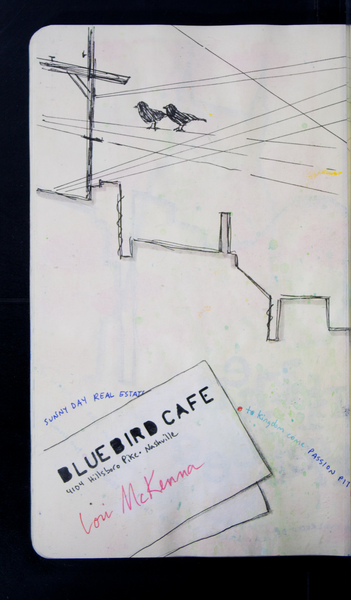 SUNNY DAY REAL ESTATE
BLUEBIRD CAFE
4104 Hillsboro Pike • Nashville
Lori McKenna
to kingdom come PASSION PIT